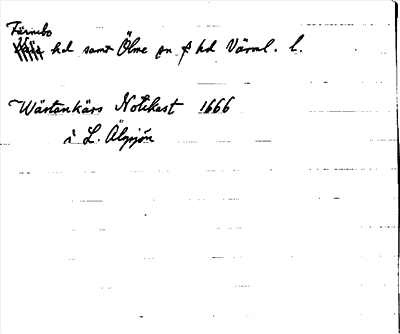 Färnebo
hd samt Ölme sn o hd Värml. l.
Wästankärs Notkast 1666
i L. Älgsjön